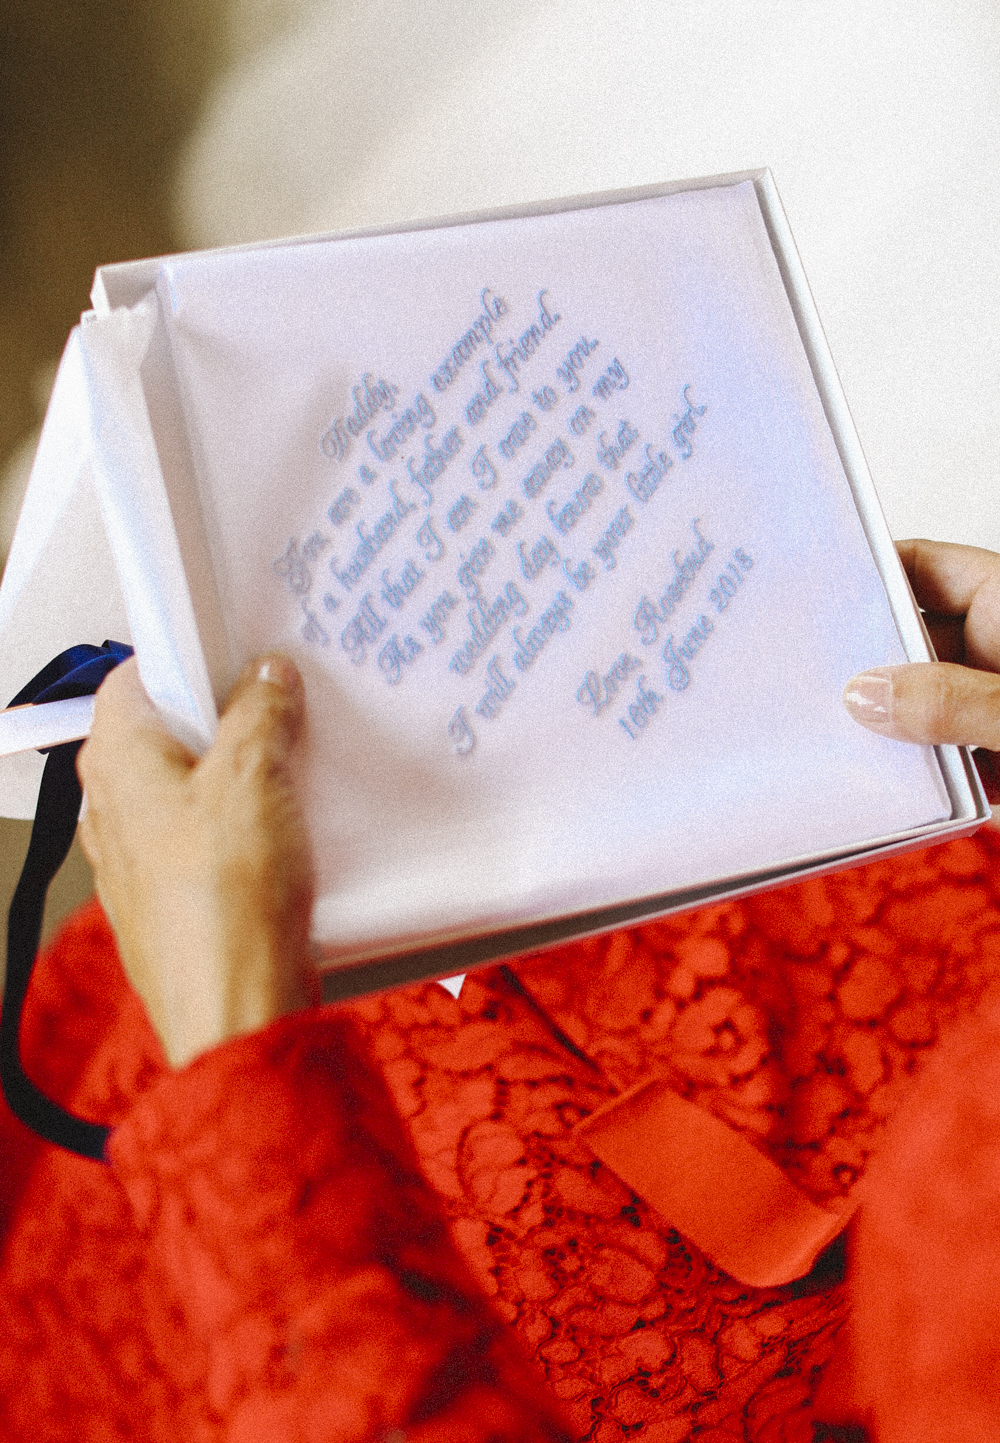 Daddy,
You are a loving example
of a husband, father and friend.
All that I am I owe to you.
As you give me away on my
wedding day know that
I will always be your little girl.
Love, Rosebud
16th June 2018